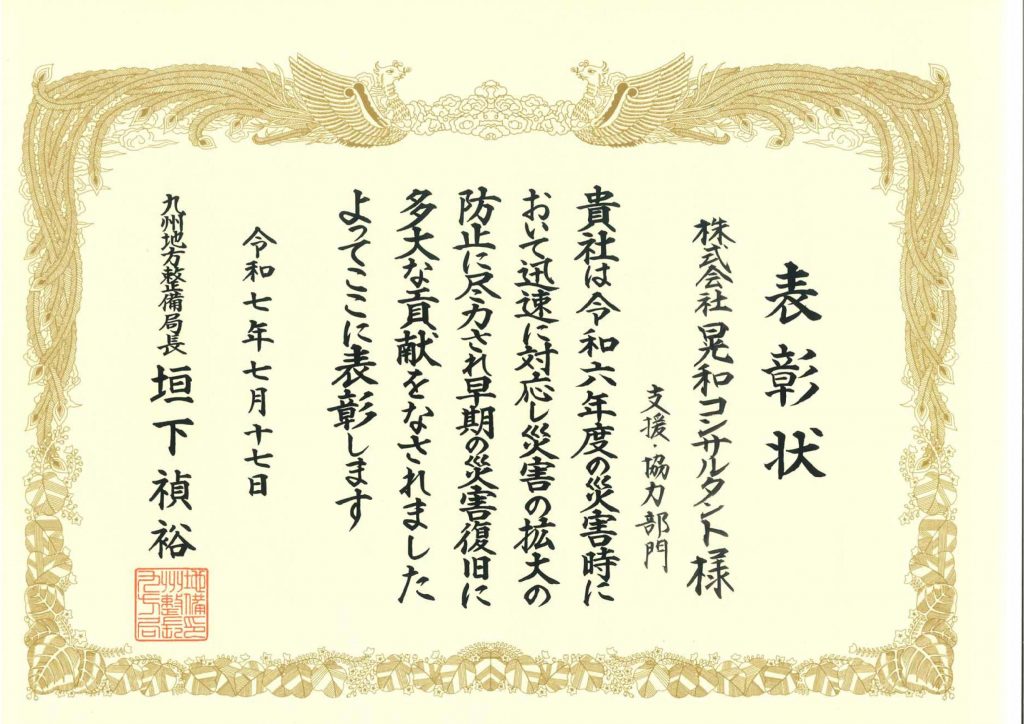 表彰状
株式会社 晃和コンサルタント 様
支援・協力部門
貴社は令和六年度の災害時に
おいて迅速に対応し災害の拡大の
防止に尽力され早期の災害復旧に
多大な貢献をなされました
よってここに表彰します
令和七年七月十七日
九州地方整備局長 垣下禎裕